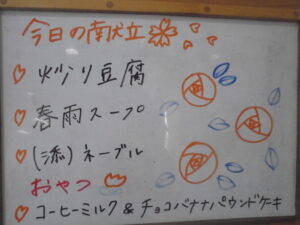 今日の献立
炒り豆腐
春雨スープ
(添)ネーブル
おやつ
コーヒーミルク&チョコバナナパウンドケーキ